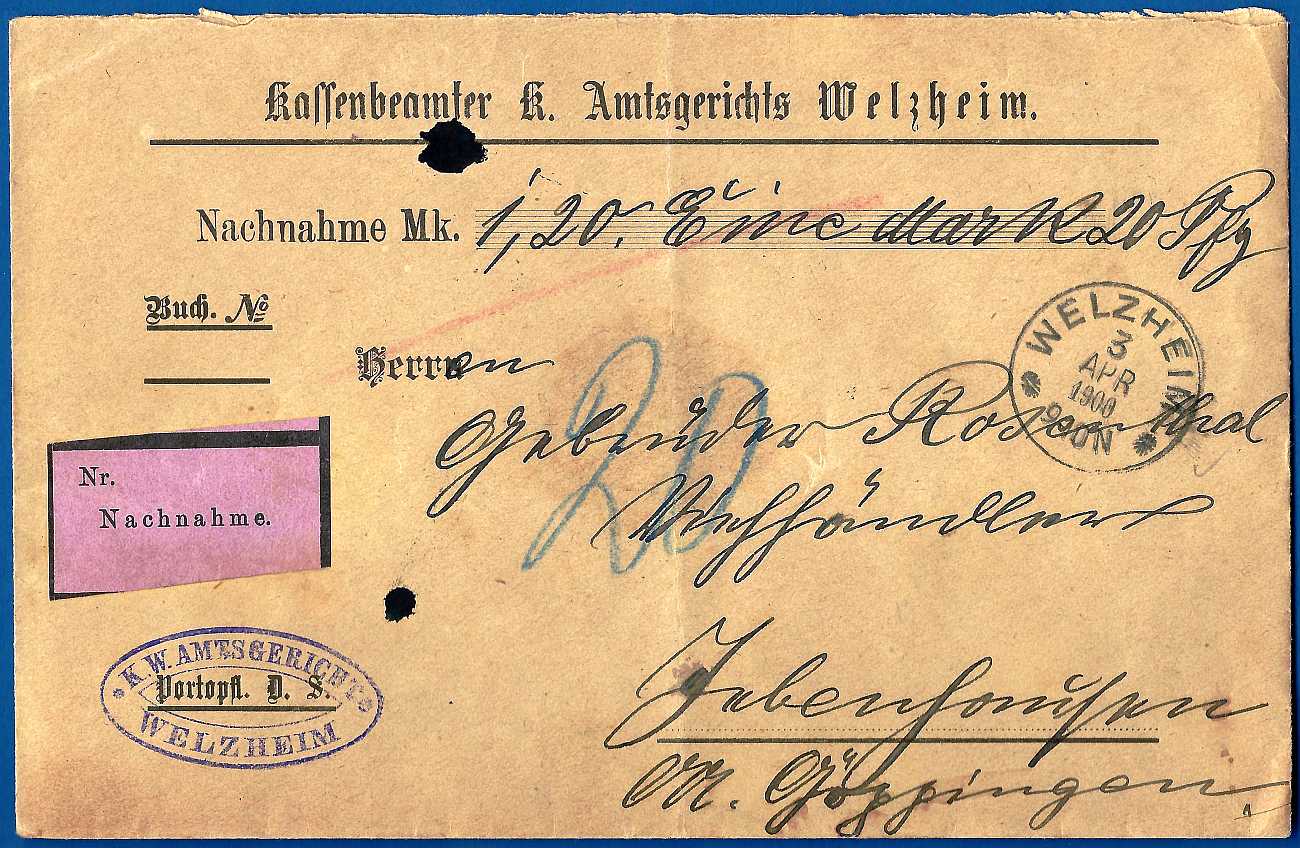 Kassenbeamter K. Amtsgerichts Welzheim.
Nachnahme Mk. 1,20. Eine Mark 20 Pfg
Buch. No
Herrnen
20
WELZHEIM
3
APR
1900
Gebrüder Rosenthal
Viehhändler
Nr.
Nachnahme.
K.W. AMTSGERICHT
Portopfl. D. S.
WELZHEIM
Jebenhausen
OA. Göppingen